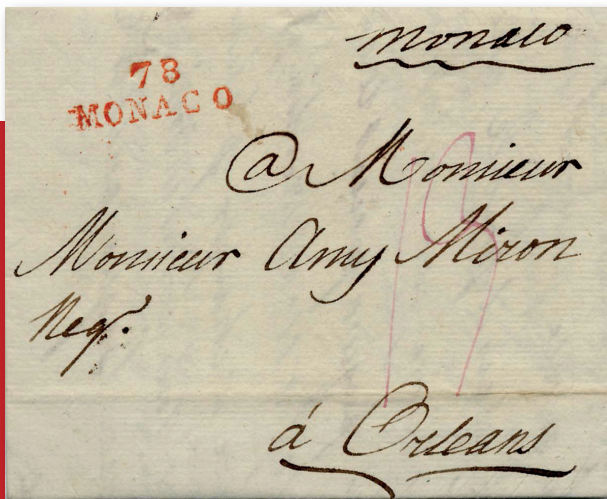 monaco
78
MONACO
@ Monsieur
Monsieur Amy Miron
Neg.
19
á Orleans